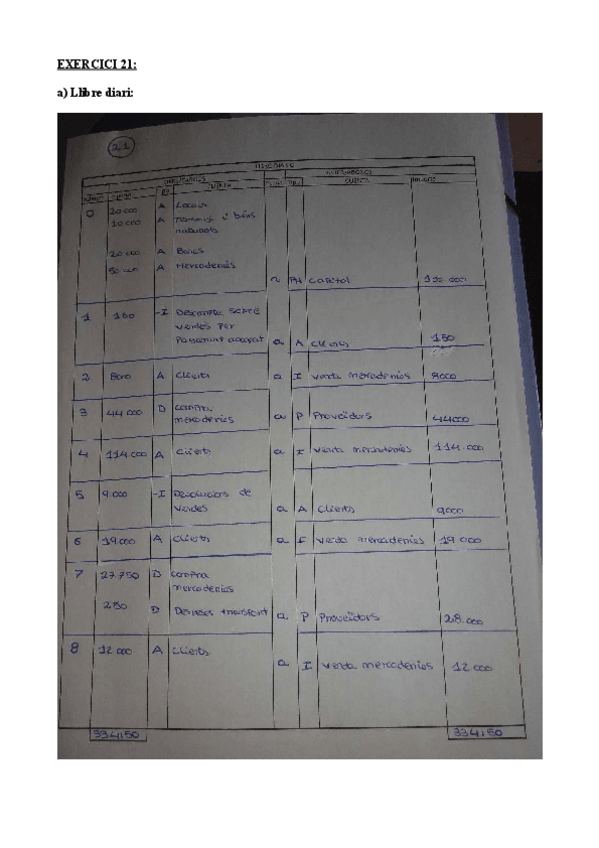 EXERCICI 21:
a) Llibre diari:
21
0 20.000 A Locals
10.000 A Terrenys i béns
naturals
20.000 A Bancs
50.000 A Mercaderies
a PN Capital 100.000
1 150 -I Descompte sobre
vendes per
Pagament
a A Clients 150
2 8000 A Clients a I Venda mercaderies 8000
3 44.000 D Compra
mercaderies a P Proveïdors 44000
4 114.000 A Clients a I Venda mercaderies 114.000
5 9.000 -I Devolucions de
vendes a A Clients 9000
6 19.000 A Clients a I Venda mercaderies 19.000
7 27.750 D Compra
mercaderies
250 D Despeses transport a P Proveïdors 28.000
8 12.000 A Clients
a I Venda mercaderies 12.000
334.150 334.150